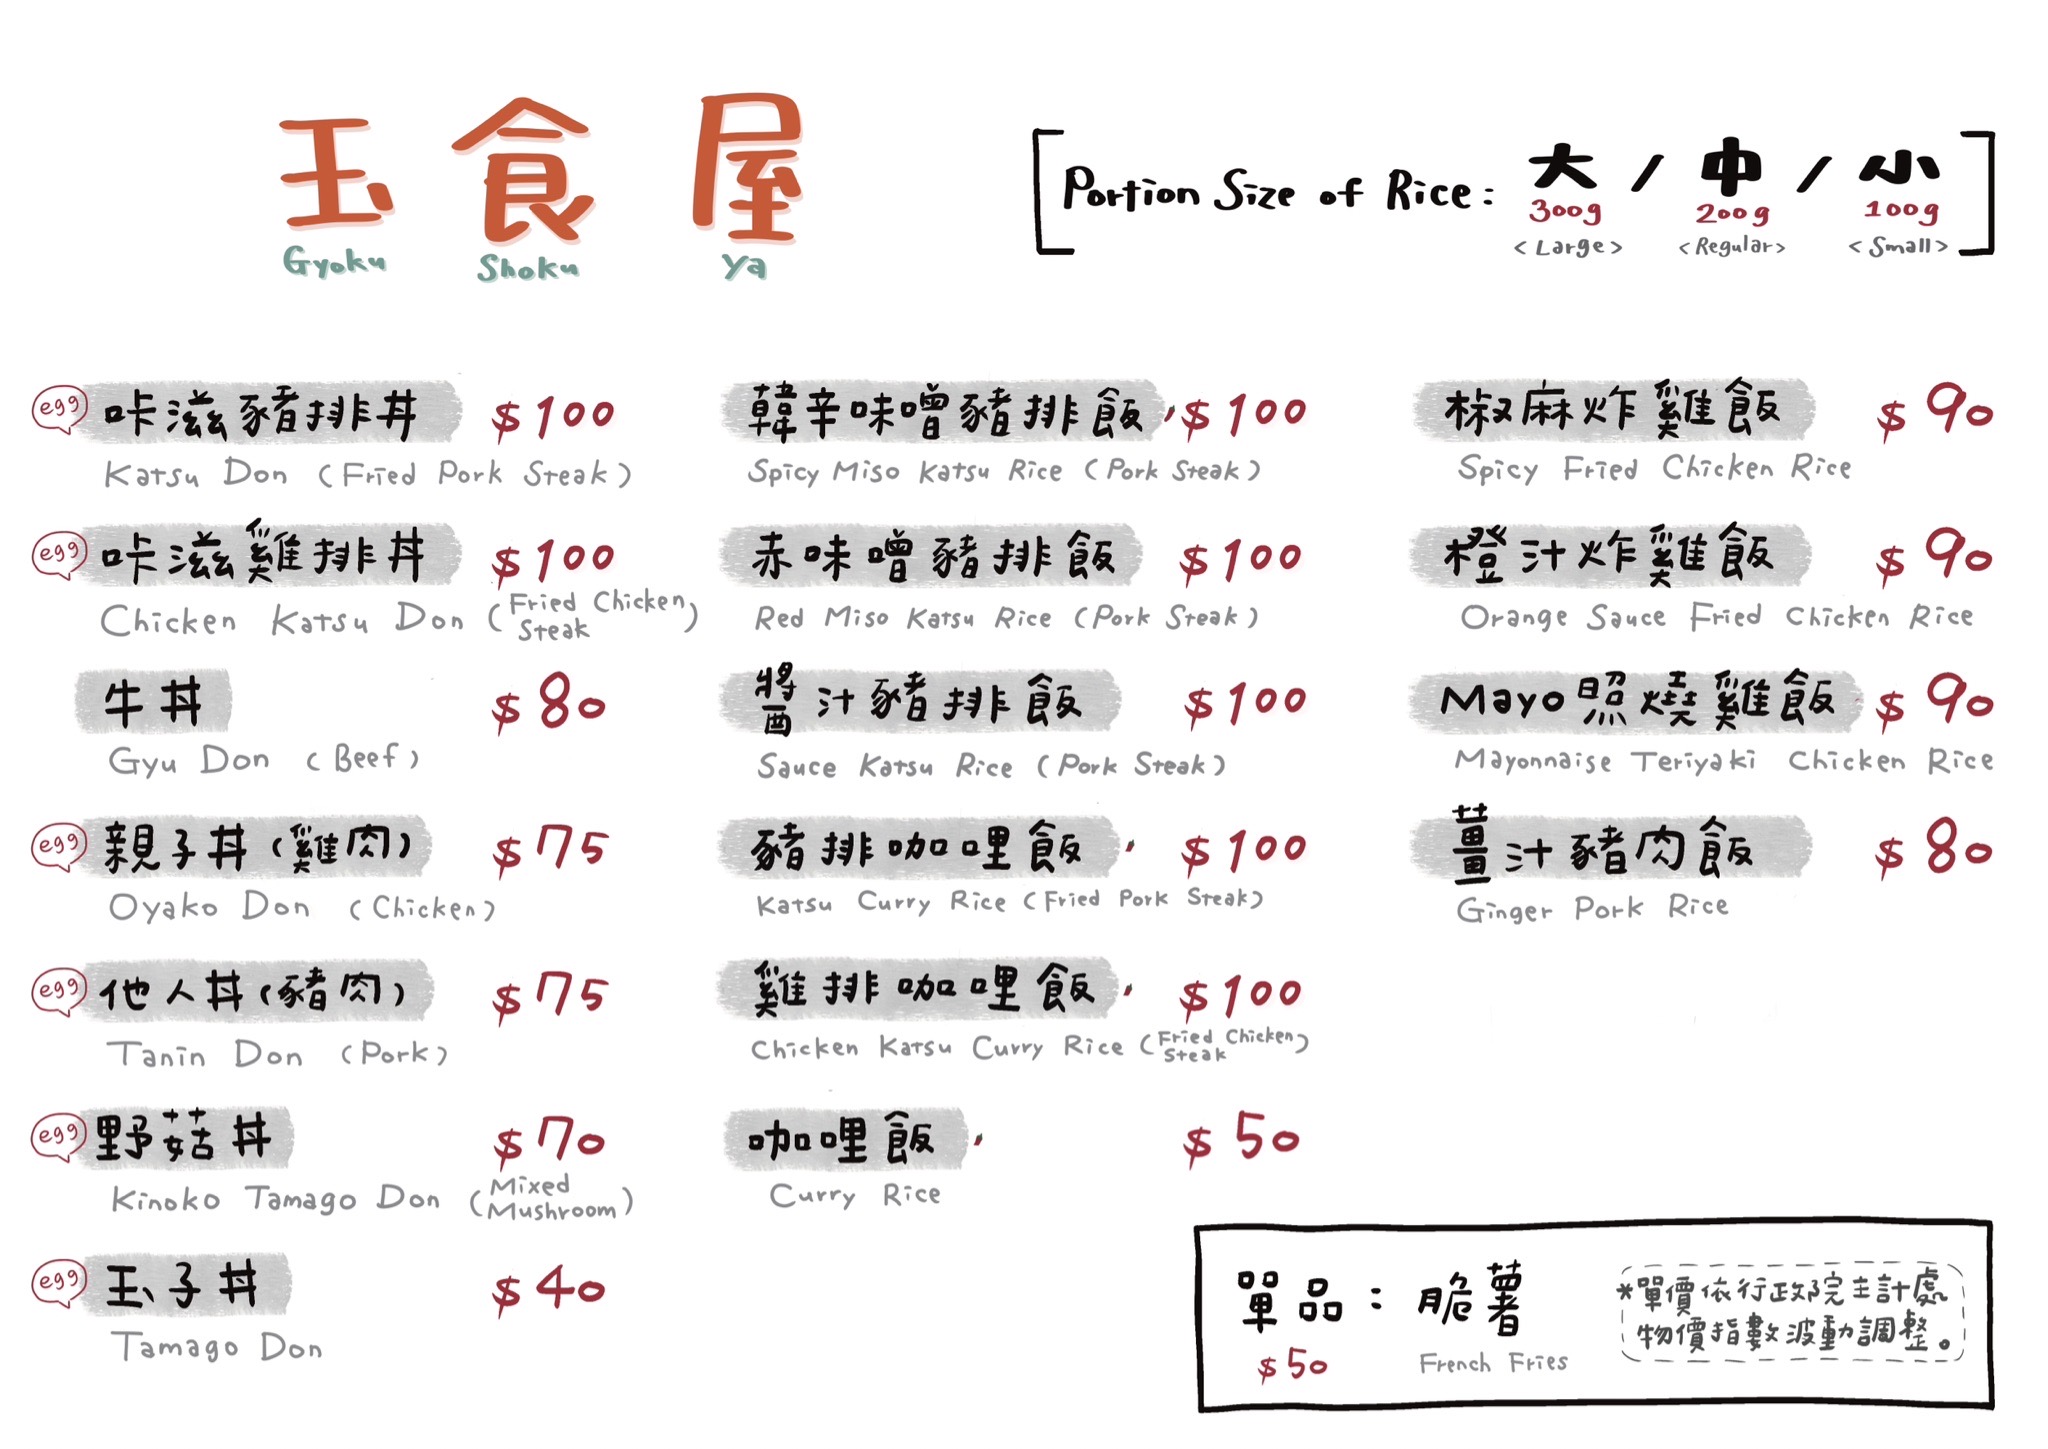 玉食屋
Gyoku Shoku ya
[Portion Size of Rice: 大 / 中 / 小]
300g 200g 100g
<Large> <Regular> <Small>
egg 咔滋豬排丼 $100
Katsu Don (Fried Pork Steak)
egg 咔滋雞排丼 $100
Chicken Katsu Don (Fried Chicken Steak)
牛丼 $80
Gyu Don (Beef)
egg 親子丼(雞肉) $75
Oyako Don (Chicken)
egg 他人丼(豬肉) $75
Tanin Don (Pork)
egg 野菇丼 $70
Kinoko Tamago Don (Mixed Mushroom)
egg 玉子丼 $40
Tamago Don
韓辛味噌豬排飯 $100
Spicy Miso Katsu Rice (Pork Steak)
赤味噌豬排飯 $100
Red Miso Katsu Rice (Pork Steak)
醬汁豬排飯 $100
Sauce Katsu Rice (Pork Steak)
豬排咖哩飯 $100
Katsu Curry Rice (Fried Pork Steak)
雞排咖哩飯 $100
Chicken Katsu Curry Rice (Fried Chicken Steak)
咖哩飯 $50
Curry Rice
椒麻炸雞飯 $90
Spicy Fried Chicken Rice
橙汁炸雞飯 $90
Orange Sauce Fried Chicken Rice
Mayo照燒雞飯 $90
Mayonnaise Teriyaki Chicken Rice
薑汁豬肉飯 $80
Ginger Pork Rice
單品: 脆薯
$50 French Fries
*單價依行政院主計處
物價指數波動調整。